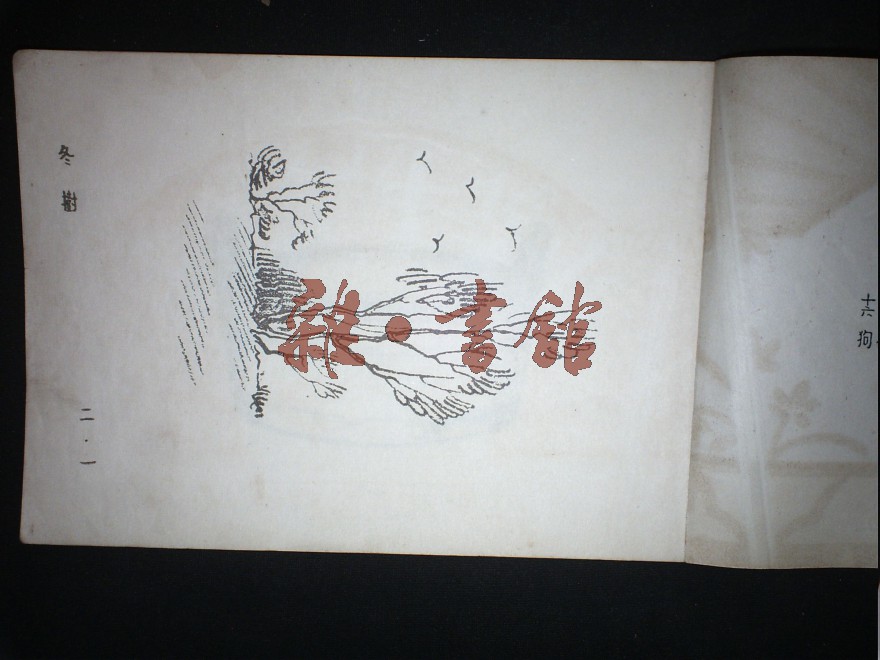 冬樹
二·一
雜·書館
十六
狗